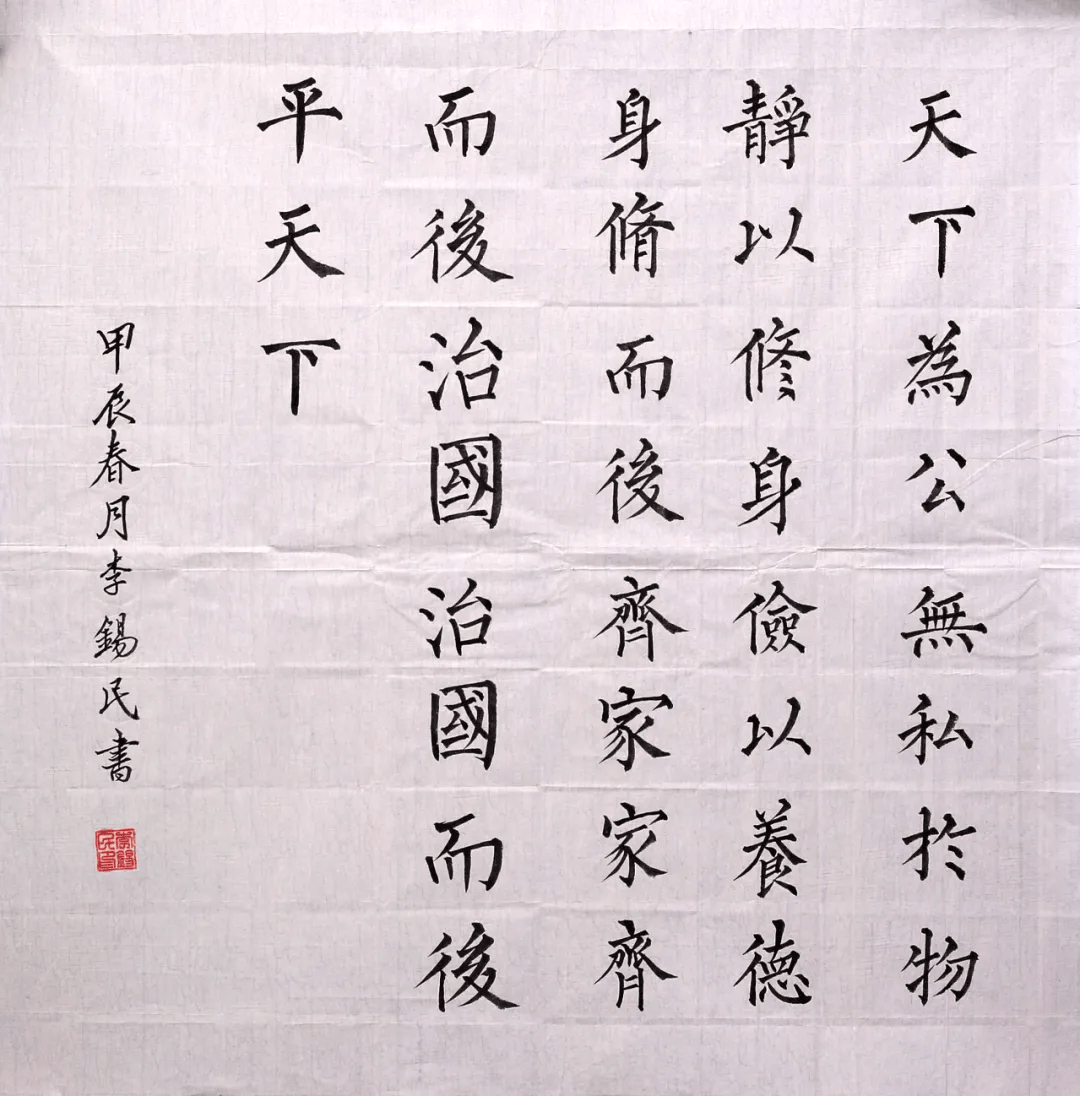 天下為公無私於物
靜以修身儉以養德
身脩而後齊家家齊
而後治國治國而後
平天下
甲辰春月李錫民書